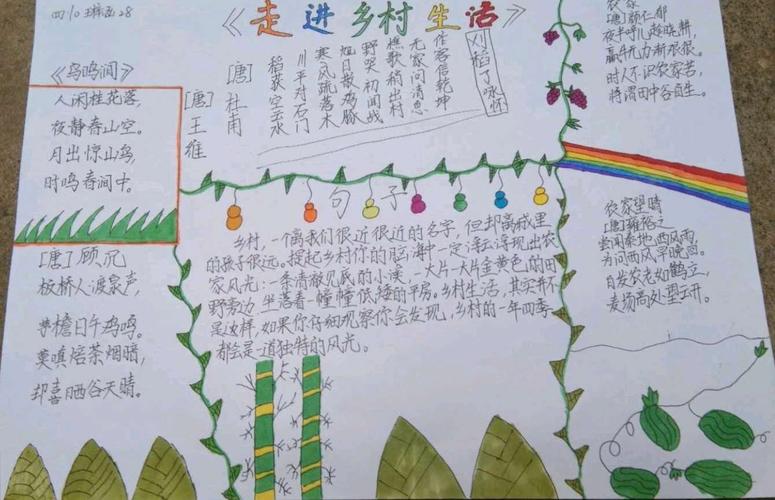 四10 28
《走进乡村生活》
《鸟鸣涧》
人闲桂花落，
夜静春山空。
月出惊山鸟，
时鸣春涧中。
[唐]王维
刈稻了咏怀
[唐]杜甫
稻获空云水
川平对石门
寒风疏落木
旭日散鸡豚
野哭初闻战
樵歌稍出村
无家问消息
作客信乾坤
农家
[唐]颜仁郁
夜半呼儿趁晓耕，
羸牛无力渐艰难。
时人不识农家苦，
将谓田中谷自生。
句子
乡村，一个离我们很近很近的名字，但却离城里
的孩子很远。提起乡村你的脑海中一定会浮现出农
家风光：一条清澈见底的小溪，一大片一大片金黄色的田
野旁边，坐落着一幢幢低矮的平房。乡村生活，其实并不
是这样，如果你仔细观察你会发现，乡村的一年四季
都会是一道独特的风光。
[唐]顾况
板桥人渡泉声，
茅檐日午鸡鸣。
莫嗔焙茶烟暗，
却喜晒谷天晴。
农家望晴
[唐]雍裕之
尝闻秦地西风雨，
为问西风早晚回。
白发农老如鹤立，
麦场高处望云开。